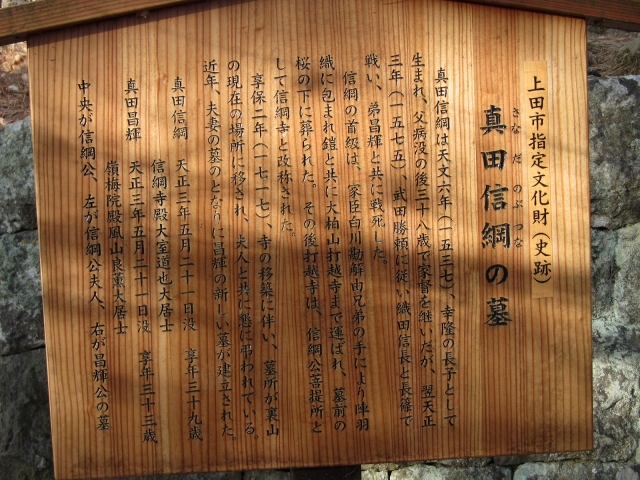 上田市指定文化財(史跡)
さなだ のぶつな
真田信綱の墓
真田信綱は天文六年(一五三七)、幸隆の長子として
生まれ、父病没の後三十八歳で家督を継いだが、翌天正
三年(一五七五)、武田勝頼に従い織田信長と長篠で
戦い、弟昌輝と共に戦死した。
信綱の首級は、家臣白川勘解由兄弟の手により陣羽
織に包まれ鎧と共に大柏山打越寺まで運ばれ、墓前の
桜の下に葬られた。その後打越寺は、信綱公菩提所と
して信綱寺と改称された。
享保二年(一七一七)、寺の移築に伴い、墓所が裏山
の現在の場所に移され、夫人と共に懇に弔われている。
近年、夫妻の墓のとなりに昌輝の新しい墓が建立された。
真田信綱 天正三年五月二十一日没 享年三十九歳
信綱寺殿大室道也大居士
真田昌輝 天正三年五月二十一日没 享年三十三歳
嶺梅院殿風山良薫大居士
中央が信綱公、左が信綱公夫人、右が昌輝公の墓